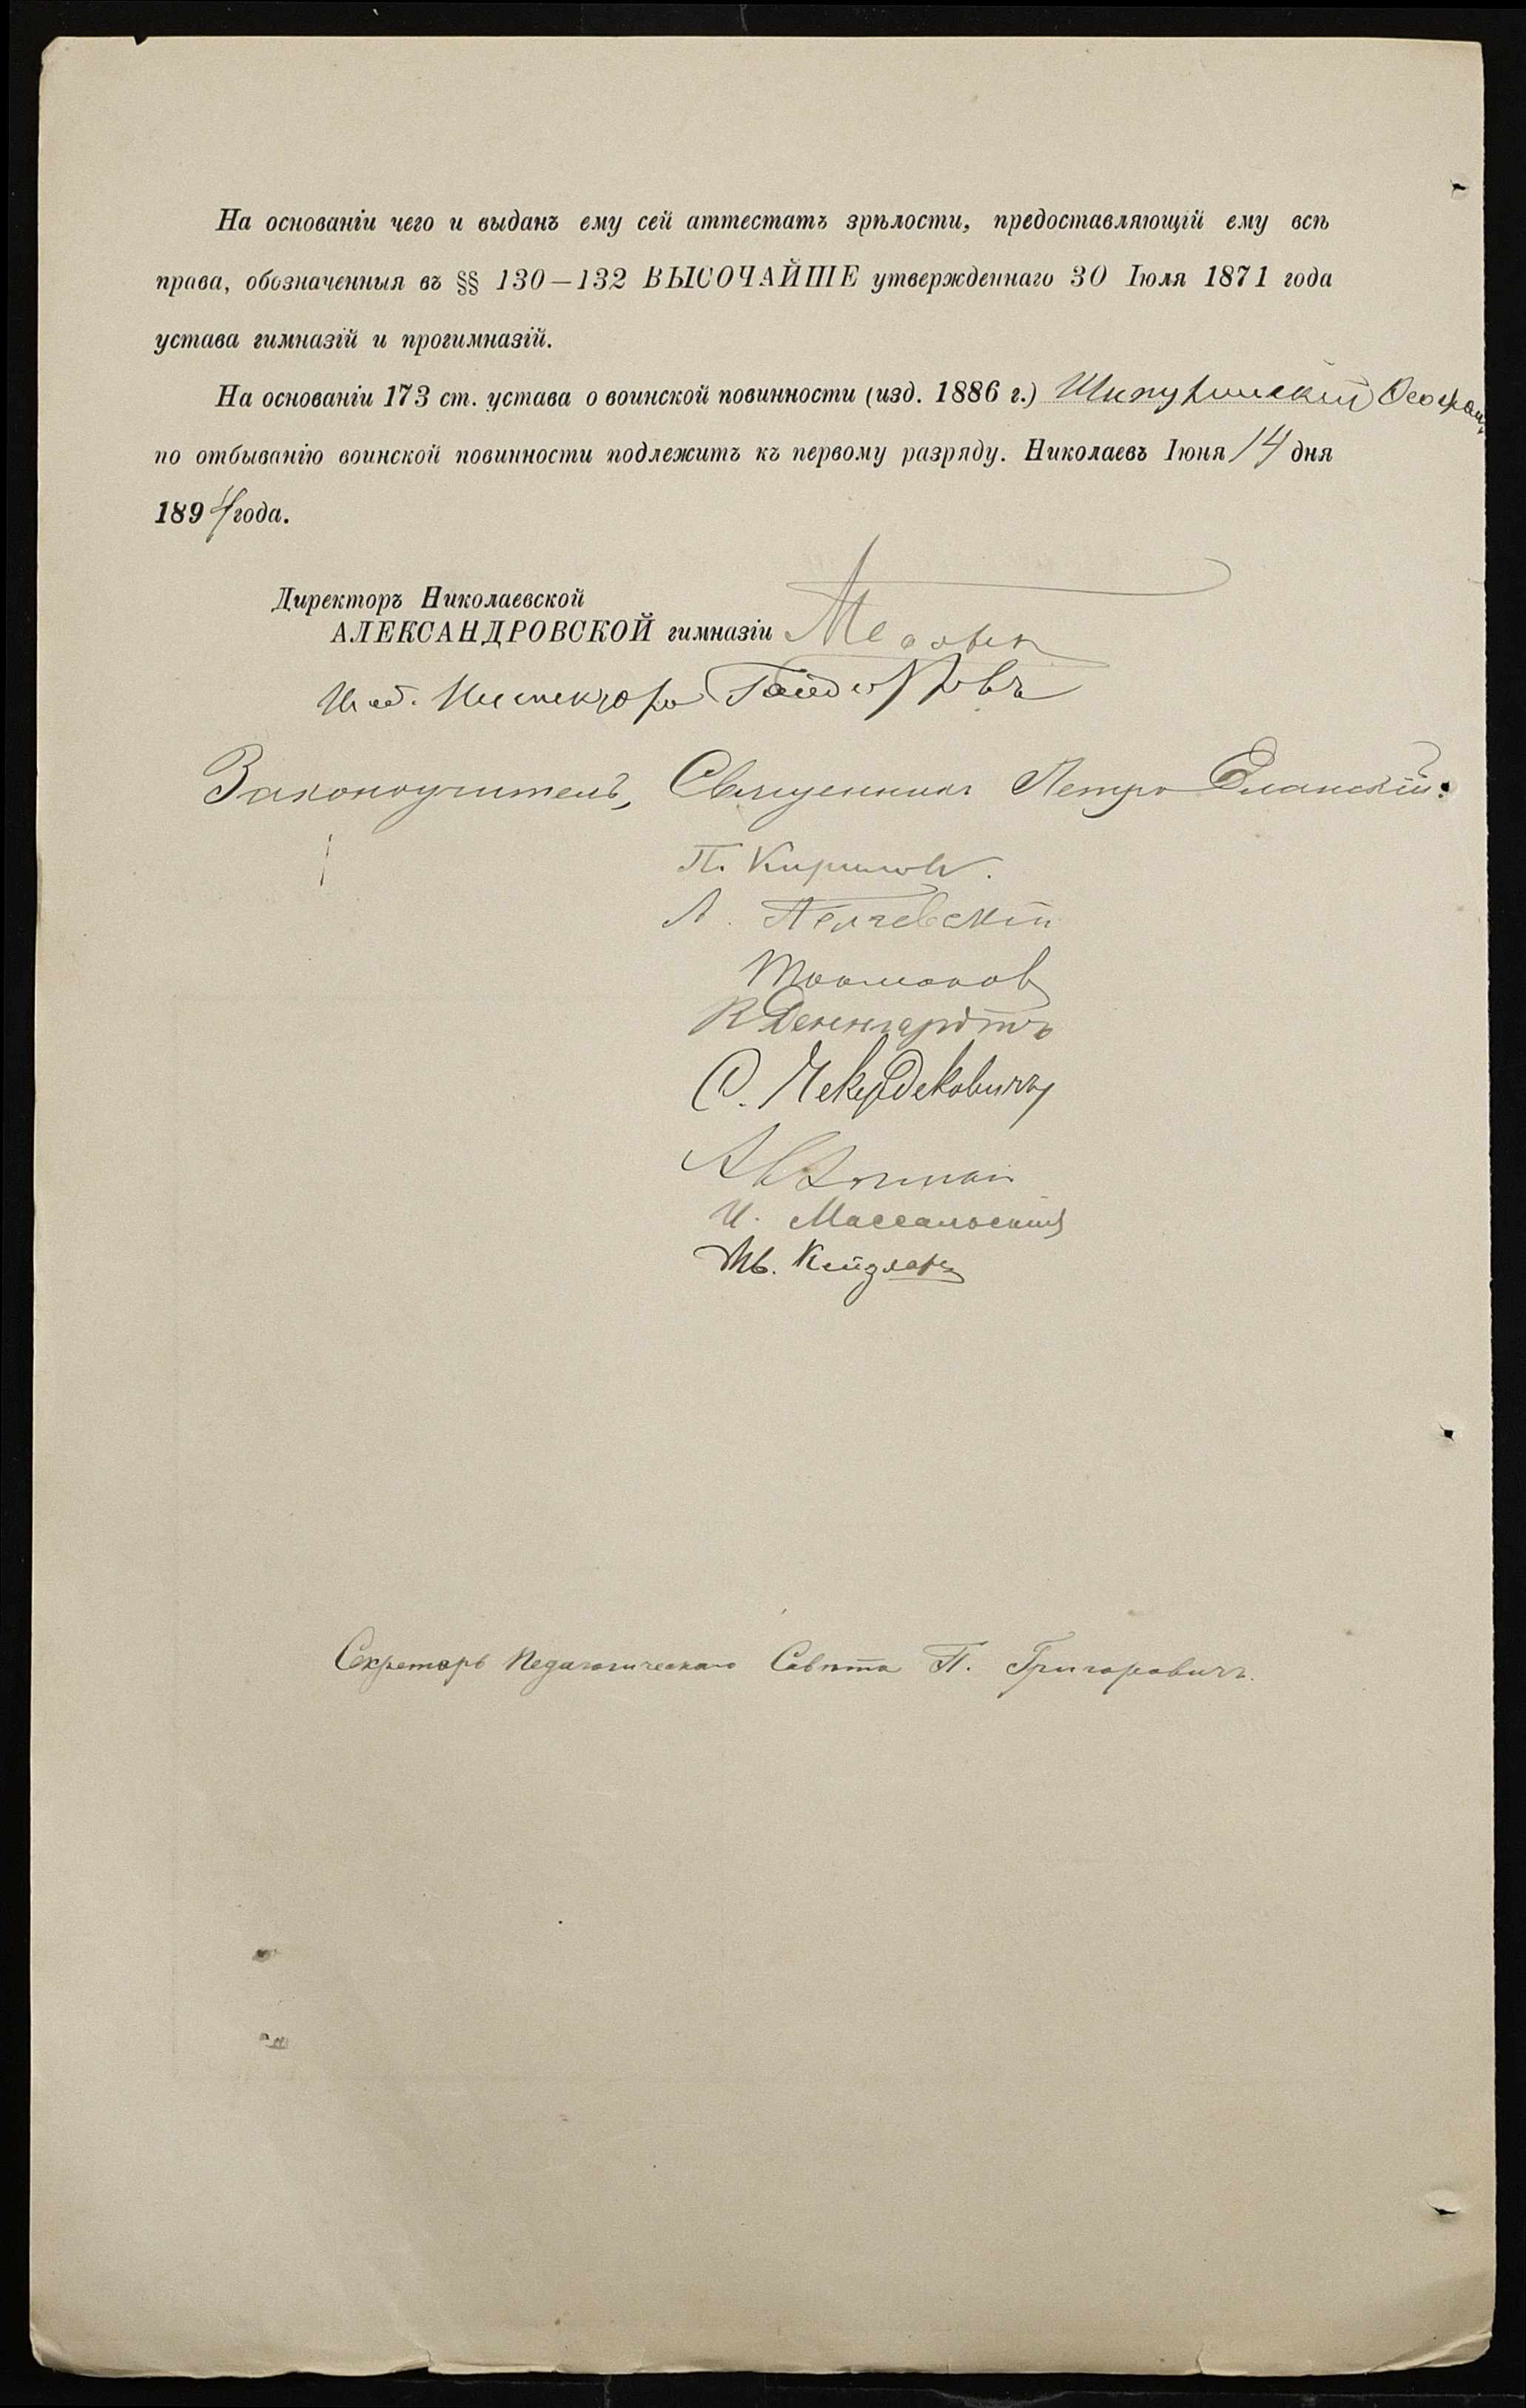 На основаніи чего и выданъ ему сей аттестатъ зрѣлости, предоставляющій ему всѣ
права, обозначенныя въ §§ 130—132 ВЫСОЧАЙШЕ утвержденнаго 30 Іюля 1871 года
устава гимназій и прогимназій.
На основаніи 173 ст. устава о воинской повинности (изд. 1886 г.)
по отбыванію воинской повинности подлежитъ къ первому разряду. Николаевъ Іюня 14 дня
1894 года.
Директоръ Николаевской
АЛЕКСАНДРОВСКОЙ гимназіи
Инспектора
Законоучитель, Священникъ Петръ Еланскій.
П. Кириловъ.
Р Деннгардтъ
С. Чекердековичъ
И. Массальскій
Ив. Кейзларъ
Секретарь Педагогическаго Совѣта П. Григоровичъ.